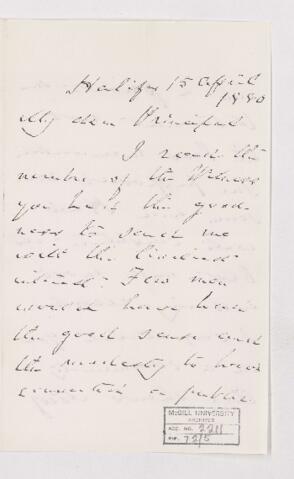 Halifax 15 April
1880
My dear Principal
I read the
number of the Witness
you had the good-
ness to send me
with the
Few men
would have had
the good sense and
the modesty to
connection a public
McGILL UNIVERSITY
ARCHIVES
ACC. NO. 2211
REF. 72/5